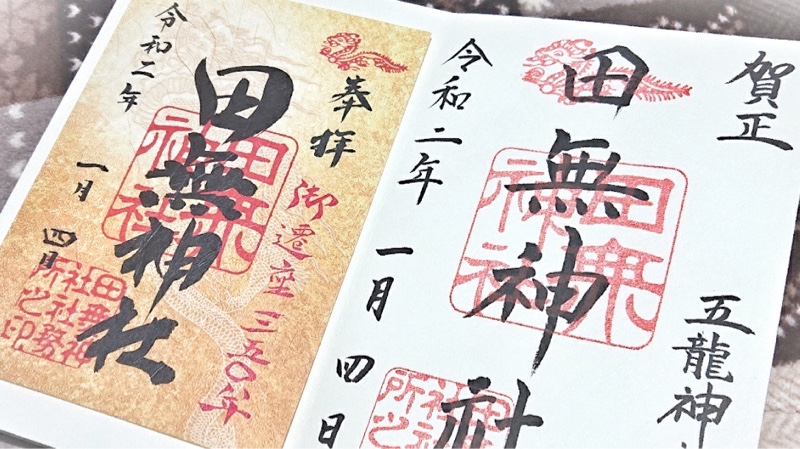 賀正
五龍神
田無神社
田無神社
令和二年
一月四日
奉拝
御遷座三五〇年
田無神社
田無神社
令和二年
一月四日
田無神
社社務
所之印